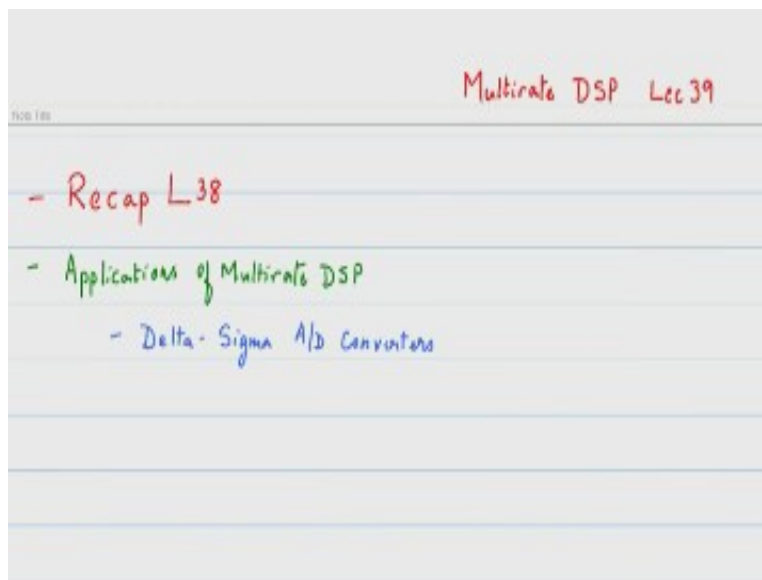 Multirate DSP Lec 39
- Recap L38
- Applications of Multirate DSP
- Delta-Sigma A/D Converters